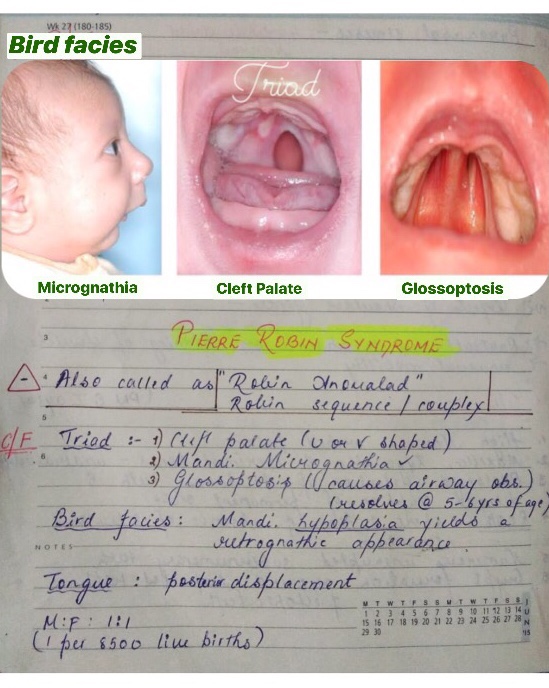 Wk 27 (180-185)
Bird facies
Triad
Micrognathia
Cleft Palate
Glossoptosis
3
PIERRE ROBIN SYNDROME
4
Also called as "Robin Anomalad"
Robin sequence / complex
5
C/F Triad :- 1) Cleft palate (U or V shaped)
6
2) Mandi. Micrognathia ✓
3) Glossoptosis (causes airway obs.)
(resolves @ 5-6 yrs of age)
Bird facies : Mandi. hypoplasia yields a
NOTES
retrognathic appearance
Tongue : posterior displacement
M:F : 1:1
(1 per 8500 live births)
M T W T F S S M T W T F S S
1 2 3 4 5 6 7 8 9 10 11 12 13 14
15 16 17 18 19 20 21 22 23 24 25 26 27 28
29 30
JUN
'15